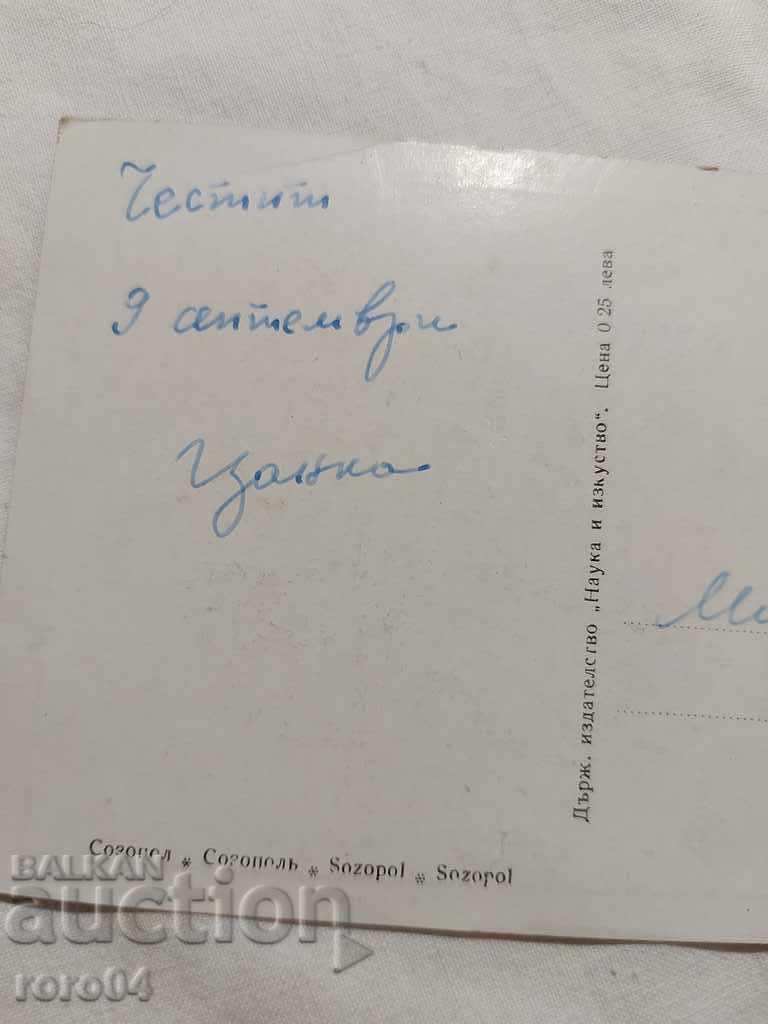 Честит
9 септември
Цанка
Държ. издателство „Наука и изкуство“. Цена 0 25 лева
Созопол * Созополь * Sozopol * Sozopol
BALKAN
auction
roro04